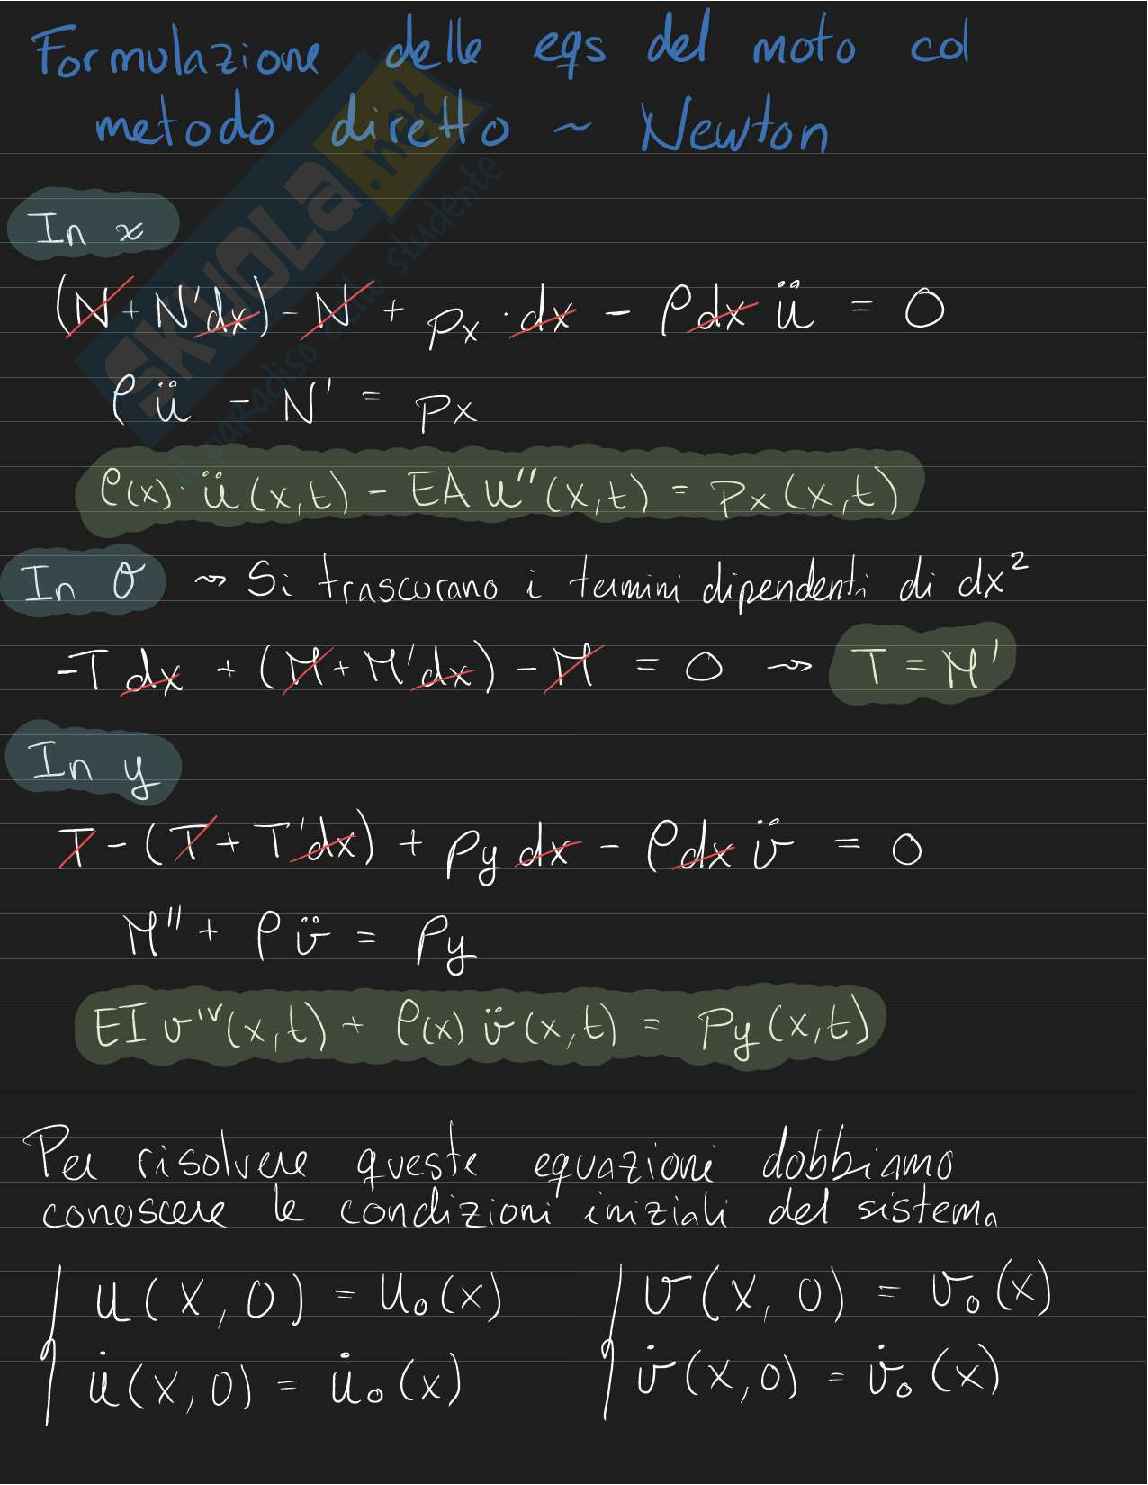 Formulazione delle eqs del moto col
metodo diretto ~ Newton
In x
(N + N'dx) - N + px · dx - ρdx ü = 0
ρ ü - N' = px
ρ(x) · ü(x,t) - EA u''(x,t) = px(x,t)
In θ ⇝ Si trascurano i termini dipendenti di dx²
-T dx + (M + M'dx) - M = 0 ⇝ T = M'
In y
T - (T + T'dx) + py dx - ρdx v̈ = 0
M'' + ρ v̈ = py
EI v^IV(x,t) + ρ(x) v̈(x,t) = py(x,t)
Per risolvere queste equazioni dobbiamo
conoscere le condizioni iniziali del sistema
u(x,0) = u₀(x) v(x,0) = v₀(x)
u̇(x,0) = u̇₀(x) v̇(x,0) = v̇₀(x)
SKUOLa.net